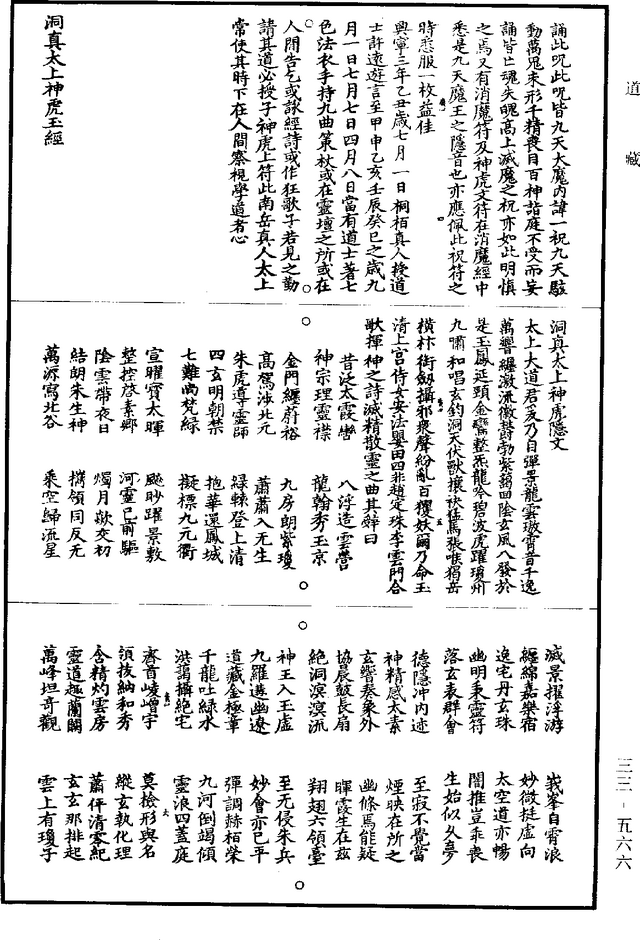 道藏
誦此呪此呪皆九天大魔內諱一祝九天駭
動萬鬼束形千精喪目百神詣庭不受而妄
誦皆亡魂失魄高上滅魔之祝亦如此明慎
之焉又有消魔符及神虎文符在消魔經中
悉是九天魔王之隱音也亦應佩此祝符之
時悉服一枚益佳
興寧三年乙丑歲七月一日桐柏真人授道
士許遠遊言至甲申乙亥壬辰癸巳之歲九
月一日七月七日四月八日當有道士著七
色法衣手持九曲策杖或在靈壇之所或在
人間告乞或詠經詩或作狂歌子若見之勤
請其道必授子神虎上符此南岳真人太上
常使其時下在人間察視學道者心
洞真太上神虎玉經
洞真太上神虎隱文
太上大道君爰乃自彈景龍雲璈霄音千逸
萬響纏激流徵鬱勃紫錫回陰玄風八發於
是玉鳳延頸金鸞整炁龍吟碧波虎躍瓊州
九嘯和唱玄鈞洞天伏獸攘袂狂馬張喉猲岳
橫衿銜劔攝邪衆聲紛亂百穢妖爾乃命玉
清上宮侍女安法嬰田四非趙定珠李雲門合
歌揮神之詩滅精散靈之曲其辭曰
昔泛太霞巒 八浮造雲營
神宗理靈襟 龍翰秀玉京
金門纏蔚裕 九房朗紫瓊
高駕涉北元 蕭蕭入无生
朱虎導靈師 綠輅登上清
四玄明朝禁 抱華還鳳城
七難尚梵綠 擬標九元衢
宣曜賓太暉 飈眇躍景敷
整控啓素鄉 河靈已前驅
陰雲帶夜日 燭月歘交初
結朗朱生神 攜領同反无
萬源寫北谷 乘空歸流星
滅景擢浮游 峩峯自霄浪
纏綿嘉樂宿 妙微挺虛向
逸宅丹玄珠 太空道亦暢
幽明秉靈符 闇推豈乖喪
落玄表群會 生始似久夢
德隱冲內迹 至寂不覺當
神精感太素 煙映在所之
玄響叅象外 幽條焉能疑
協晨鼓長扇 暉霞生在茲
絶洞溟溟流 翔翅六領臺
神王入玉虛 至无侵朱兵
九羅遘幽遼 妙會亦已平
道藏金極章 彈調赫栢榮
千龍吐綠水 九河倒竭傾
洪謁攝絶宅 靈浪四蓋庭
齊首崚嶒宇 莫撿形與名
領拔納和秀 縱玄執化理
含精灼雲房 蕭伻清寥紀
靈道極蘭闕 玄玄那排起
萬峰坦奇觀 雲上有瓊子
三三-五六六